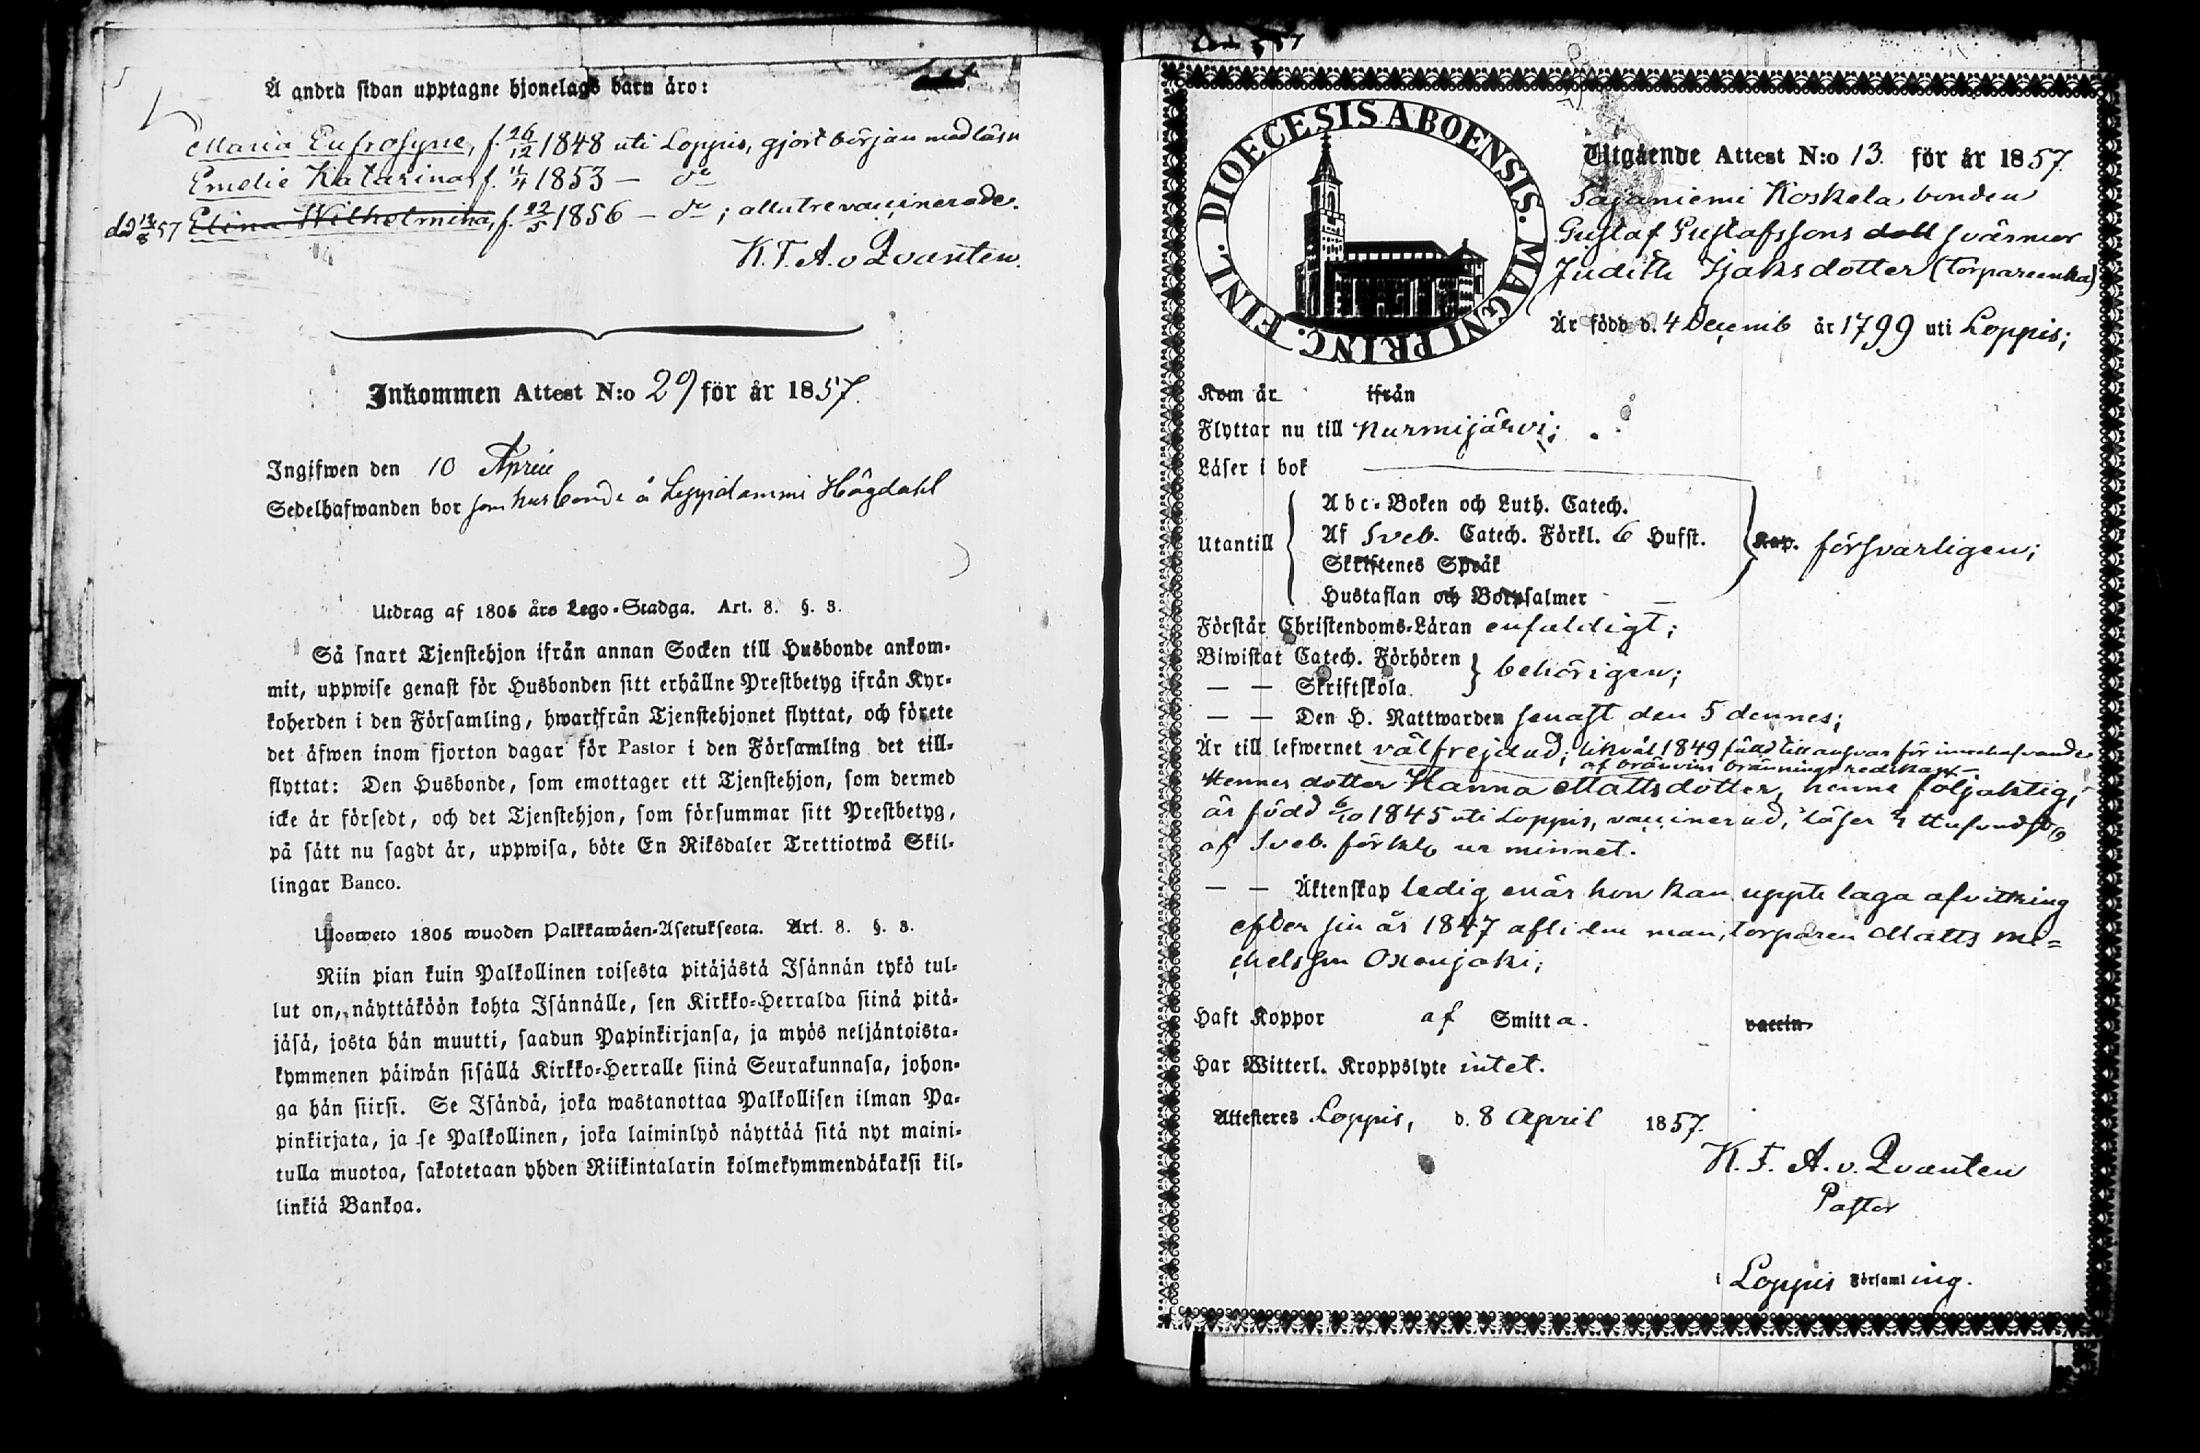 Å andra sidan upptagne hjonelags barn äro:
Maria Eufrosyne, f. 26/12 1848 uti Loppis, gjort början med läsn
Emelie Katarina, f. 1853 — do
död 57 Elina Wilhelmina, f. 22/5 1856 — do ; alla tre vaccinerade.
K. F. A. v Qvanten.
Inkommen Attest N:o 29 för år 1857.
Ingifwen den 10 April
Sedelhafwanden bor som husbonde å Leppälammi Högdahl
Utdrag af 1805 års Lego-Stadga. Art. 8. §. 3.
Så snart Tjenstehjon ifrån annan Socken till Husbonde ankom-
mit, uppwise genast för Husbonden sitt erhållne Prestbetyg ifrån Kyr-
koherden i den Församling, hwarifrån Tjenstehjonet flyttat, och förete
det äfwen inom fjorton dagar för Pastor i den Församling det till-
flyttat: Den Husbonde, som emottager ett Tjenstehjon, som dermed
icke är försedt, och det Tjenstehjon, som försummar sitt Prestbetyg,
på sätt nu sagdt är, uppwisa, böte En Riksdaler Trettiotwå Skil-
lingar Banco.
Ulosweto 1805 wuoden Palkkawäen-Asetuksesta. Art. 8. §. 3.
Niin pian kuin Palkollinen toisesta pitäjästä Isännän tykö tul-
lut on, näyttäköön kohta Isännälle, sen Kirkko-Herralda siinä pitä-
jäsä, josta hän muutti, saadun Papinkirjansa, ja myös neljäntoista-
kymmenen päiwän sisällä Kirkko-Herralle siinä Seurakunnasa, johon-
ga hän siirsi. Se Isändä, joka wastanottaa Palkollisen ilman Pa-
pinkirjata, ja se Palkollinen, joka laiminlyö näyttää sitä nyt maini-
tulla muotoa, sakotetaan yhden Riikintalarin kolmekymmendäkaksi kil-
linkiä Bankoa.
DIOECESIS ABOENSIS. MAGNI PRINC. FINL.
Utgående Attest N:o 13. för år 1857.
Sajaniemi Koskela, bonden
Gustaf Gustafssons dott svärmor
Judith Isaksdotter (torpareenka)
Är född d. 4 Decemb år 1799 uti Loppis;
Kom år ifrån
Flyttar nu till Nurmijärvi;
Läser i bok —
Utantill
Abc-Boken och Luth. Catech.
Af Sveb. Catech. Förkl. 6 Hufst.
Skriftenes Språk
Hustaflan och Botpsalmer —
Kap. försvarligen;
Förstår Christendoms-Läran enfaldigt;
Biwistat Catech. Förhören
— — Skriftskola
behörigen;
— — Den H. Nattwarden senast den 5 dennes;
Är till lefwernet välfrejdad; likväl 1849 fälld till answar för innehafvande
af bränvins bränningsredskap —
Hennes dotter Hanna Mattsdotter, henne följaktig,
är född 6/10 1845 uti Loppis, vaccinerad, läser Hufvudst
af Sveb. förkl. ur minnet.
— — Äktenskap ledig enär hon kan uppte laga afvittring
efter sin år 1847 aflidne man, torparen Matts Mi=
chelsson Oxenjoki;
Haft Koppor af Smitta. vaccin
Har Witterl. Kroppslyte intet.
Attesteres Loppis, d. 8 April 1857.
K. F. A. v. Qvanten
Pastor
i Loppis Församling.